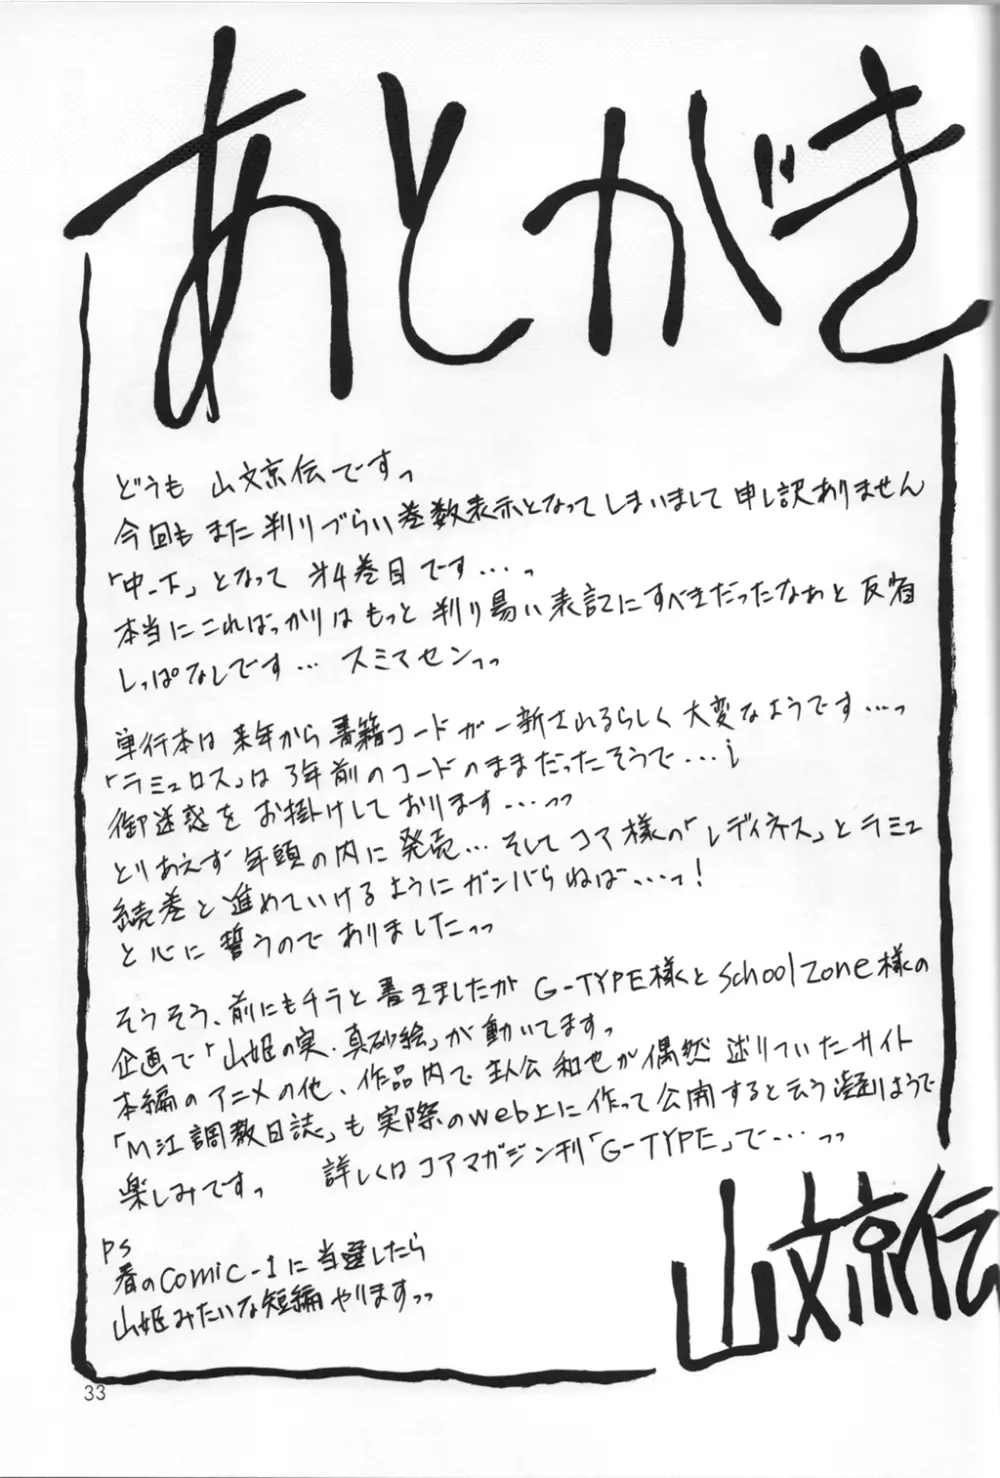 あとがき
どうも 山文京伝ですっ
今回も また 判りづらい 巻数表示となってしまいまして 申し訳ありません
「中-下」となって 第4巻目です…っ
本当に こればっかりは もっと 判り易い 表記にすべきだったなぁと 反省
しっぱなしです… スミマセンっっ
単行本は 来年から 書籍コードが 一新されるらしく 大変なようです…っ
「ラミュロス」は 3年前のコードのままだったそうで…;
御迷惑を お掛けして おります…っっ
とりあえず 年頭の内に 発売… そして コア様の「レディネス」と ラミュ
続巻と 進めていけるように ガンバらねば…っ!
と 心に 誓うので ありましたっっ
そうそう、前にもチラと 書きましたが G-TYPE様と SchoolZone様の
企画で「山姫の実・真砂絵」が 動いてますっ
本編の アニメの他、作品内で 主人公 和也が 偶然 辿りついたサイト
「M江調教日誌」も 実際の web上に 作って 公開すると云う 凝りようで
楽しみですっ 詳しくは コアマガジン刊「G-TYPE」で…っっ
PS
春の comic-1に 当選したら
山姫みたいな 短編 やりますっっ
山文京伝
33